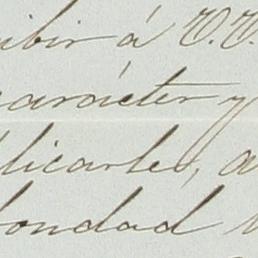 ibir á V.V.
carácter y
licarles, a
bondad